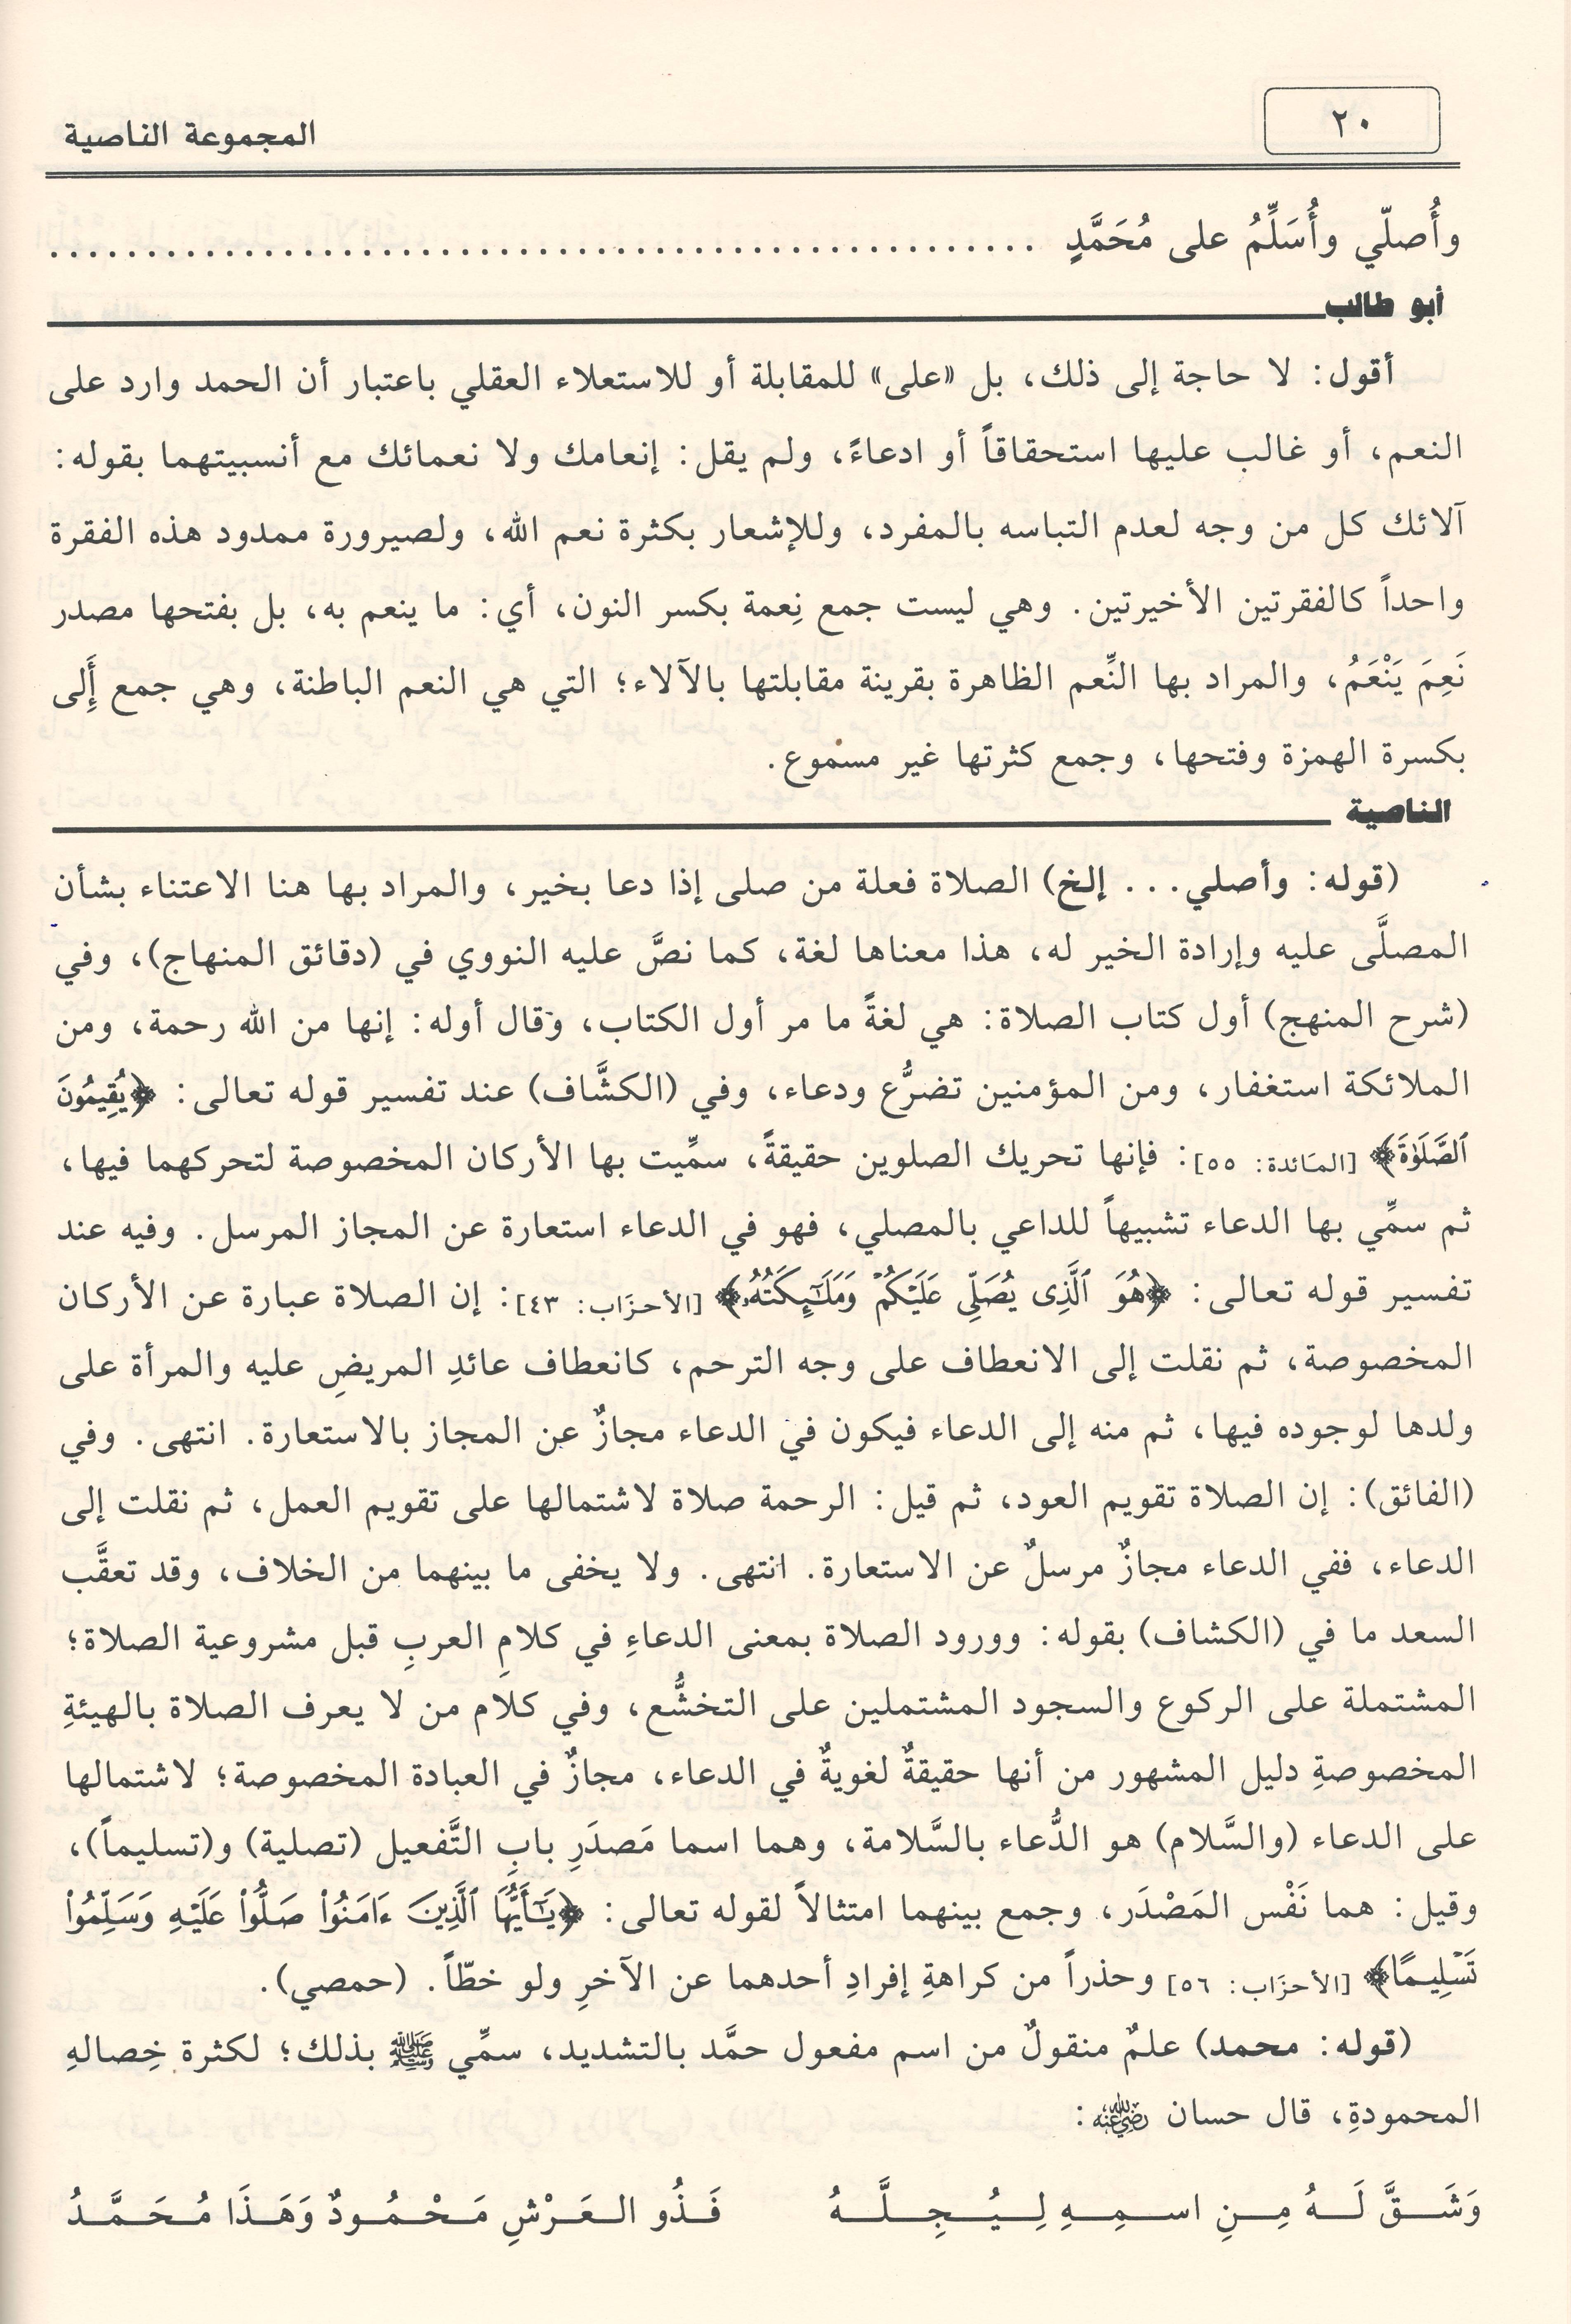 ٢٠
المجموعة الناصية
وأُصلّي وأُسَلِّمُ على مُحَمَّدٍ ..................................................
أبو طالب
أقول: لا حاجة إلى ذلك، بل «على» للمقابلة أو للاستعلاء العقلي باعتبار أن الحمد وارد على
النعم، أو غالب عليها استحقاقاً أو ادعاءً، ولم يقل: إنعامك ولا نعمائك مع أنسبيتهما بقوله:
آلائك كل من وجه لعدم التباسه بالمفرد، وللإشعار بكثرة نعم الله، ولصيرورة ممدود هذه الفقرة
واحداً كالفقرتين الأخيرتين. وهي ليست جمع نِعمة بكسر النون، أي: ما ينعم به، بل بفتحها مصدر
نَعِمَ يَنْعَمُ، والمراد بها النِّعم الظاهرة بقرينة مقابلتها بالآلاء؛ التي هي النعم الباطنة، وهي جمع إَلى
بكسرة الهمزة وفتحها، وجمع كثرتها غير مسموع.
الناصية
(قوله: وأصلي... إلخ) الصلاة فعلة من صلى إذا دعا بخير، والمراد بها هنا الاعتناء بشأن
المصلَّى عليه وإرادة الخير له، هذا معناها لغة، كما نصَّ عليه النووي في (دقائق المنهاج)، وفي
(شرح المنهج) أول كتاب الصلاة: هي لغةً ما مر أول الكتاب، وقال أوله: إنها من الله رحمة، ومن
الملائكة استغفار، ومن المؤمنين تضرُّع ودعاء، وفي (الكشَّاف) عند تفسير قوله تعالى: ﴿يُقِيمُونَ
ٱلصَّلَوٰةَ﴾ [المَائدة: ٥٥]: فإنها تحريك الصلوين حقيقةً، سمِّيت بها الأركان المخصوصة لتحركهما فيها،
ثم سمِّي بها الدعاء تشبيهاً للداعي بالمصلي، فهو في الدعاء استعارة عن المجاز المرسل. وفيه عند
تفسير قوله تعالى: ﴿هُوَ ٱلَّذِى يُصَلِّى عَلَيْكُمْ وَمَلَٰٓئِكَتُهُۥ﴾ [الأحزَاب: ٤٣]: إن الصلاة عبارة عن الأركان
المخصوصة، ثم نقلت إلى الانعطاف على وجه الترحم، كانعطاف عائدِ المريضِ عليه والمرأة على
ولدها لوجوده فيها، ثم منه إلى الدعاء فيكون في الدعاء مجازٌ عن المجاز بالاستعارة. انتهى. وفي
(الفائق): إن الصلاة تقويم العود، ثم قيل: الرحمة صلاة لاشتمالها على تقويم العمل، ثم نقلت إلى
الدعاء، ففي الدعاء مجازٌ مرسلٌ عن الاستعارة. انتهى. ولا يخفى ما بينهما من الخلاف، وقد تعقَّب
السعد ما في (الكشاف) بقوله: وورود الصلاة بمعنى الدعاءِ في كلامِ العربِ قبل مشروعية الصلاة؛
المشتملة على الركوع والسجود المشتملين على التخشُّع، وفي كلام من لا يعرف الصلاة بالهيئةِ
المخصوصةِ دليل المشهور من أنها حقيقةٌ لغويةٌ في الدعاء، مجازٌ في العبادة المخصوصة؛ لاشتمالها
على الدعاء (والسَّلام) هو الدُّعاء بالسَّلامة، وهما اسما مَصدَرِ بابِ التَّفعيل (تصلية) و(تسليماً)،
وقيل: هما نَفْس المَصْدَر، وجمع بينهما امتثالاً لقوله تعالى: ﴿يَٰٓأَيُّهَا ٱلَّذِينَ ءَامَنُوا۟ صَلُّوا۟ عَلَيْهِ وَسَلِّمُوا۟
تَسْلِيمًا﴾ [الأحزَاب: ٥٦] وحذراً من كراهةِ إفرادِ أحدهما عن الآخرِ ولو خطّاً. (حمصي).
(قوله: محمد) علمٌ منقولٌ من اسم مفعول حمَّد بالتشديد، سمِّي ﷺ بذلك؛ لكثرة خِصالهِ
المحمودةِ، قال حسان رضي الله عنه:
وَشَقَّ لَهُ مِنِ اسمِهِ لِيُجِلَّهُ فَذُو العَرْشِ مَحْمُودٌ وَهَذَا مُحَمَّدُ